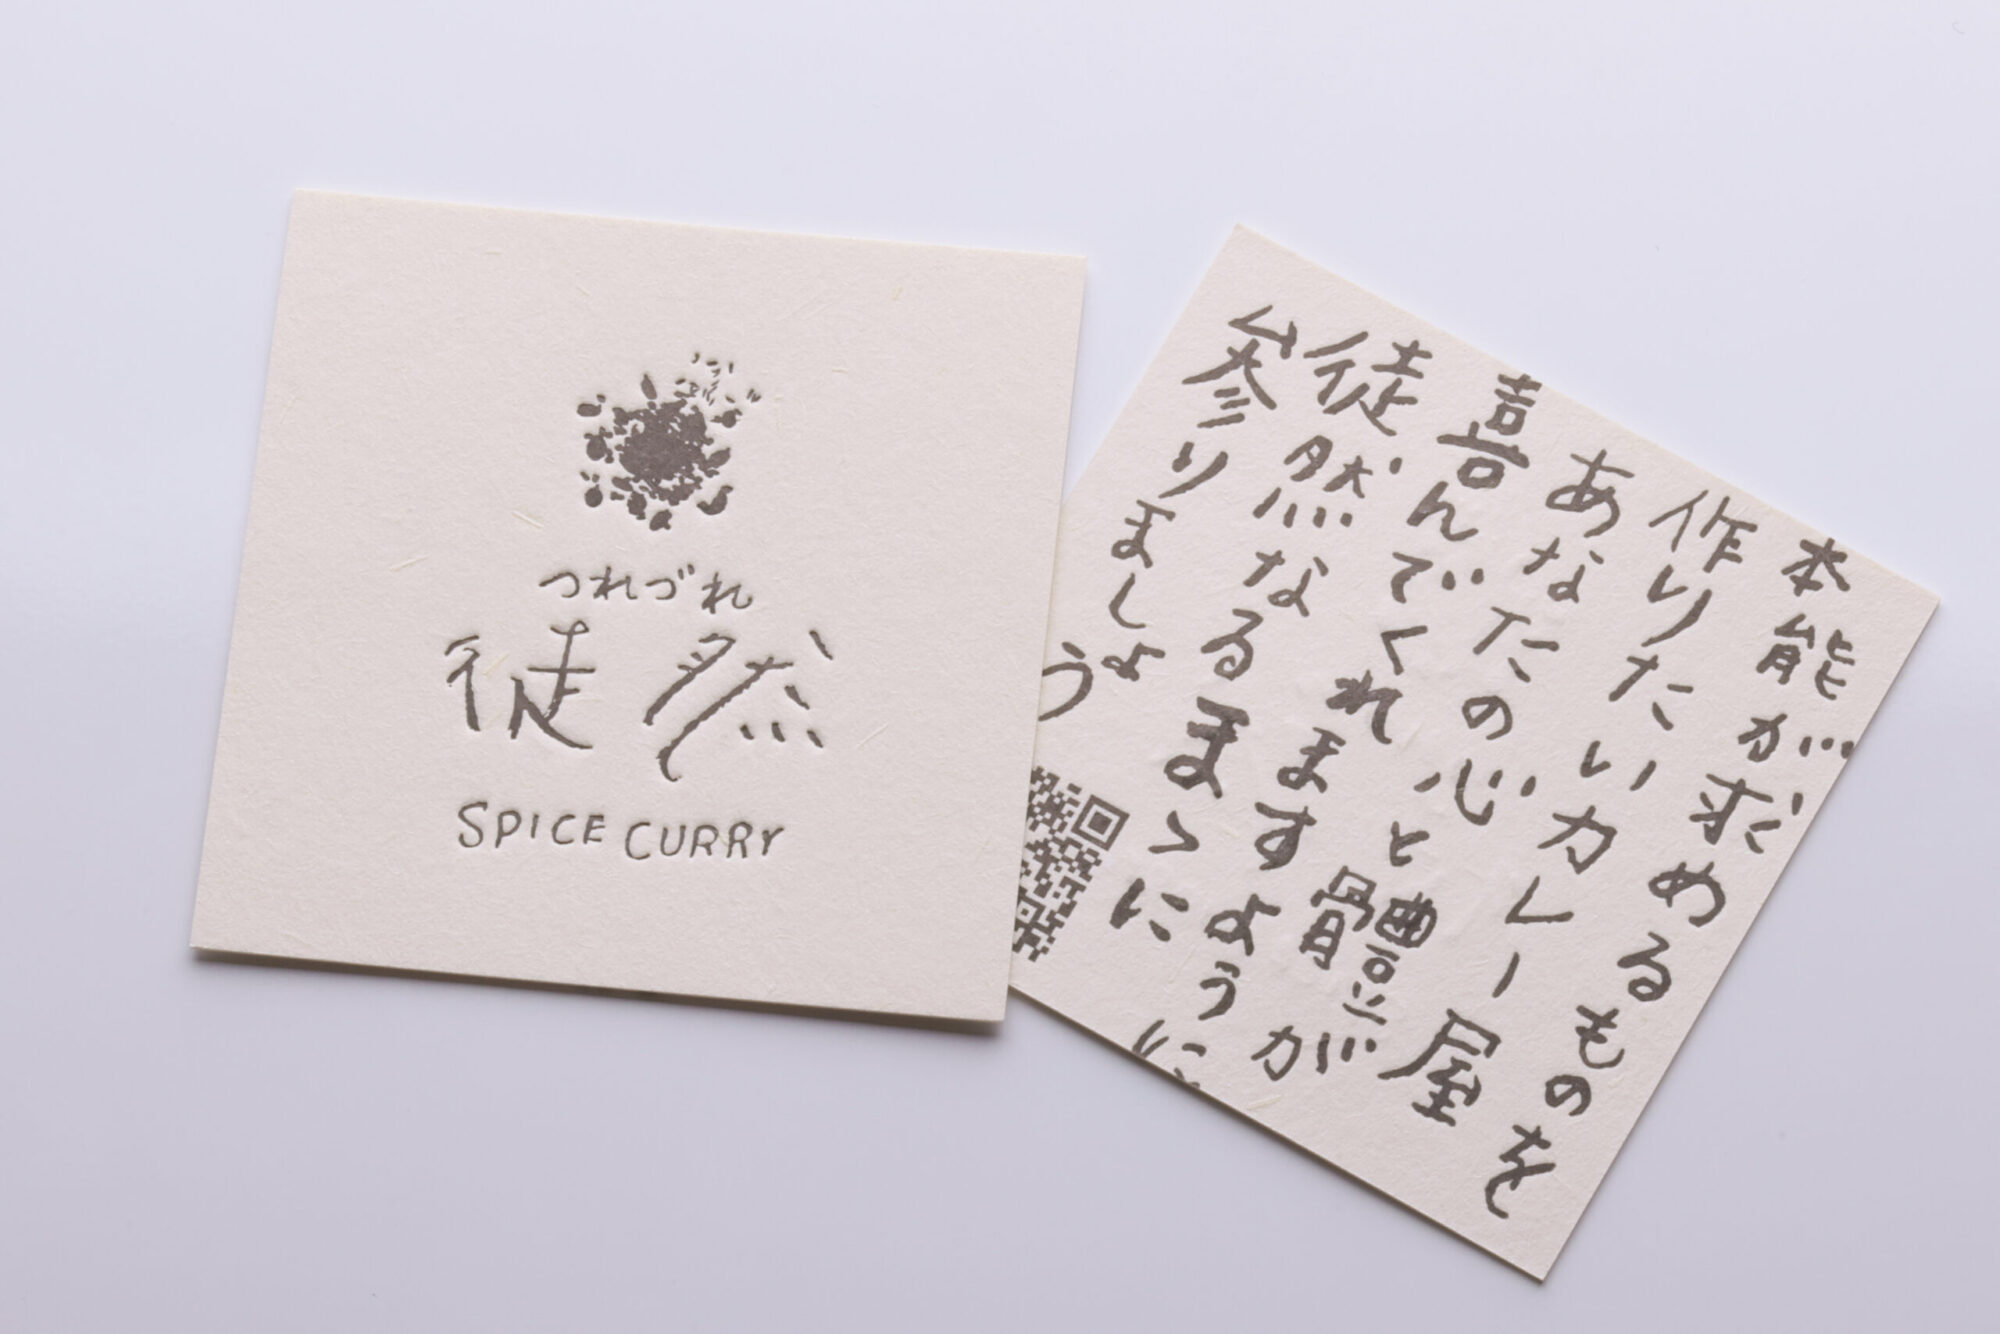 つれづれ
徒然
SPICE CURRY
本能が求めるものを
作りたいカレー屋
あなたの心と體が
喜んでくれますように
徒然なるまゝに
参りましょう